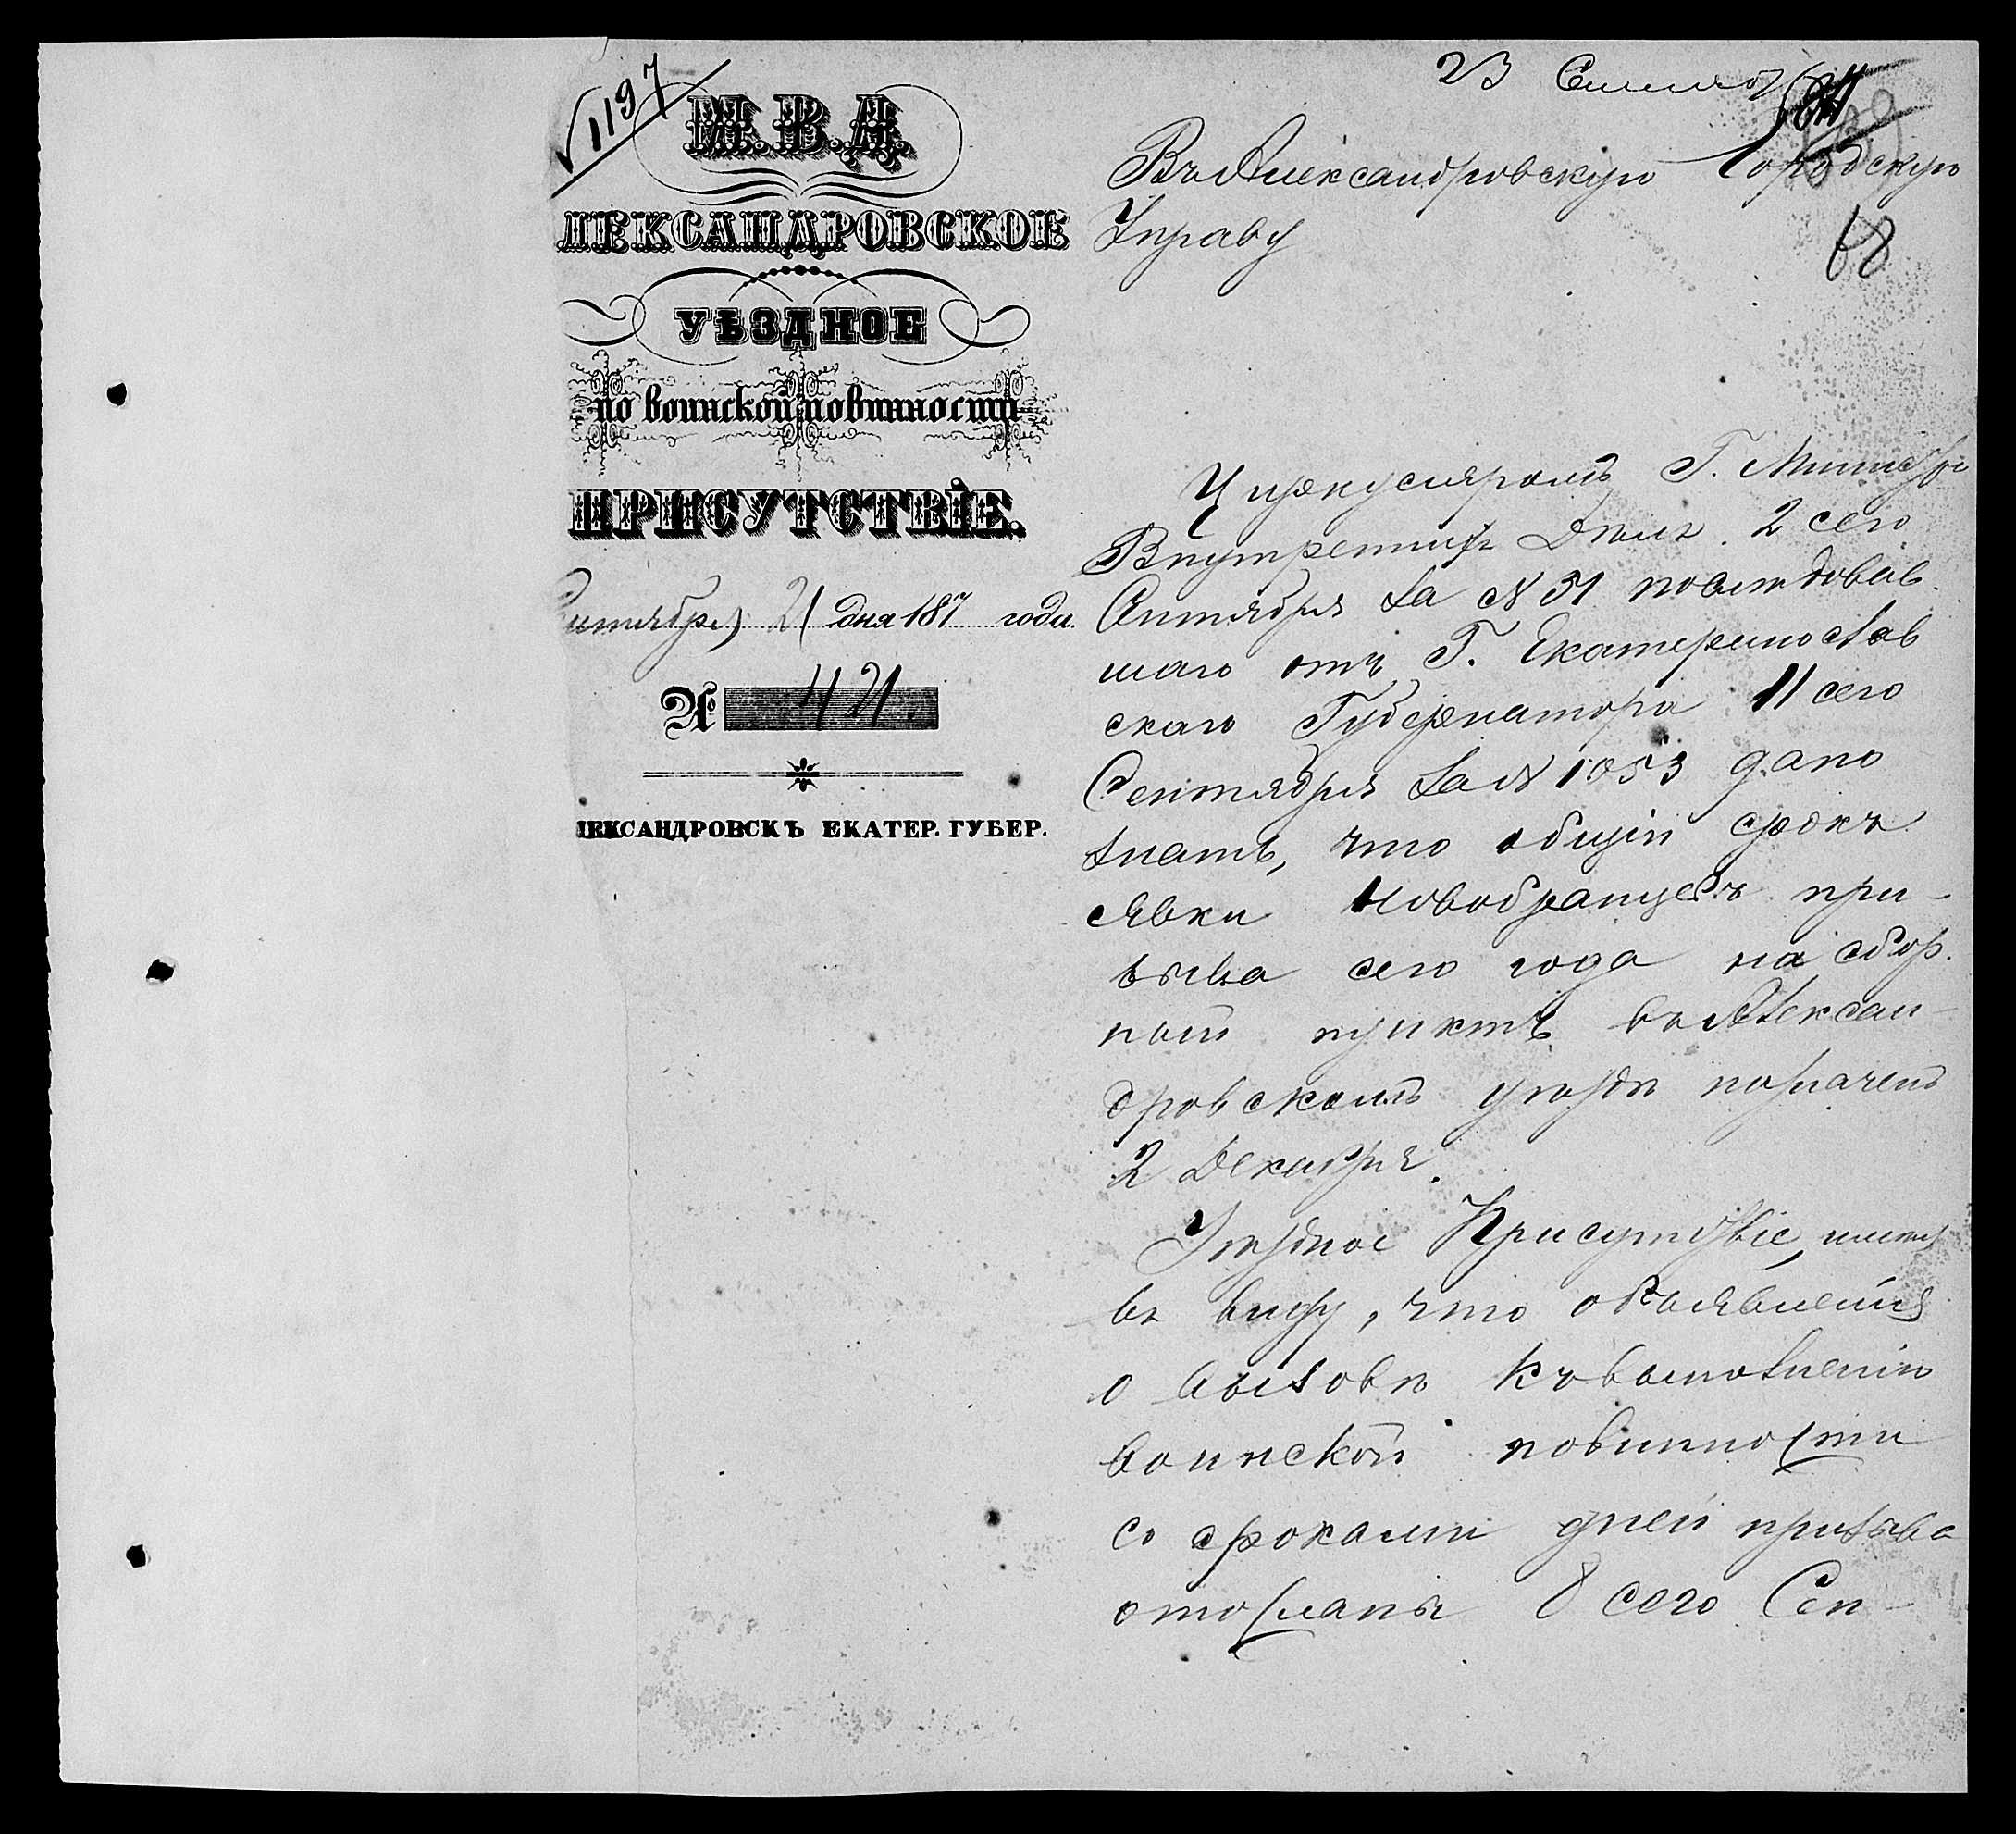 1197
М. В. Д.
ЛЕКСАНДРОВСКОЕ
УѢЗДНОЕ
по воинской повинности
ПРИСУТСТВІЕ.
ентября 21 дня 187 года.
№ 421.
ЛЕКСАНДРОВСКЪ ЕКАТЕР. ГУБЕР.
23
Въ Александровскую Городскую
Управу
68
Циркуляромъ Г. Министра
Внутреннихъ Дѣлъ 2 сего
Сентября за № 31 последовав
шаго отъ Г. Екатеринослав
скаго Губернатора 11 сего
Сентября за № 1053 дано
знать, что общій срокъ
явки Новобранцевъ при-
зыва сего года на сбор.
ный пунктъ въ Алексан-
дровскомъ уѣздѣ назначенъ
2 Декабря.
Уѣздное Присутствіе, имѣя
въ виду, что объявленія
о вызовѣ къ выполненію
воинской повинности
со сроками дней призыва
отосланы 8 сего Сен-